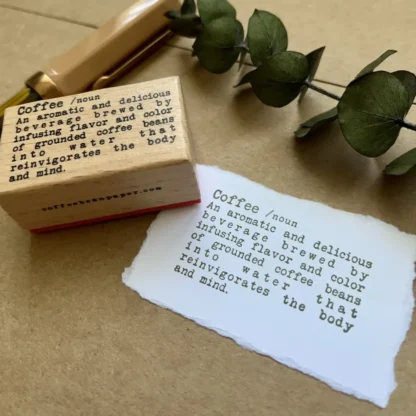 Coffee /noun
An aromatic and delicious
beverage brewed by
infusing flavor and color
of grounded coffee beans
into water that
reinvigorates the body
and mind.
coffeebeanpaper.com
Coffee /noun
An aromatic and delicious
beverage brewed by
infusing flavor and color
of grounded coffee beans
into water that
reinvigorates the body
and mind.